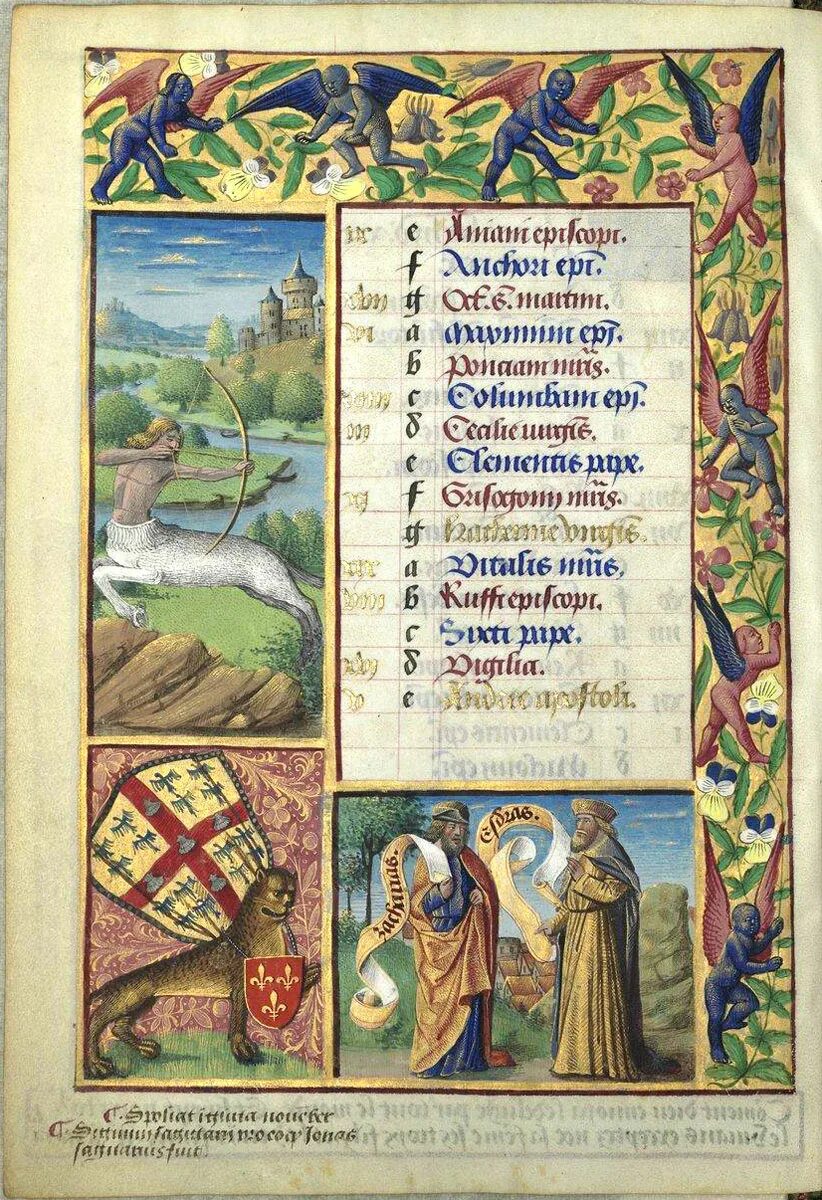 ix e Aniani episcopi.
f Anchori epi.
xvii g Oct. s. martini.
vi a Maximini epi.
b Ponciani mris.
xiiii c Columbani epi.
iii d Cecilie virgis.
e Clementis pape.
xi f Grisogoni mris.
g Katherine virgis.
xix a Vitalis mris,
viii b Ruffi episcopi.
c Sixti pape.
xvi d Vigilia.
v e Andree apostoli.
zacharias.
Esdras.
Spoliat
sagittam pro Jonas
sagittarius fuit